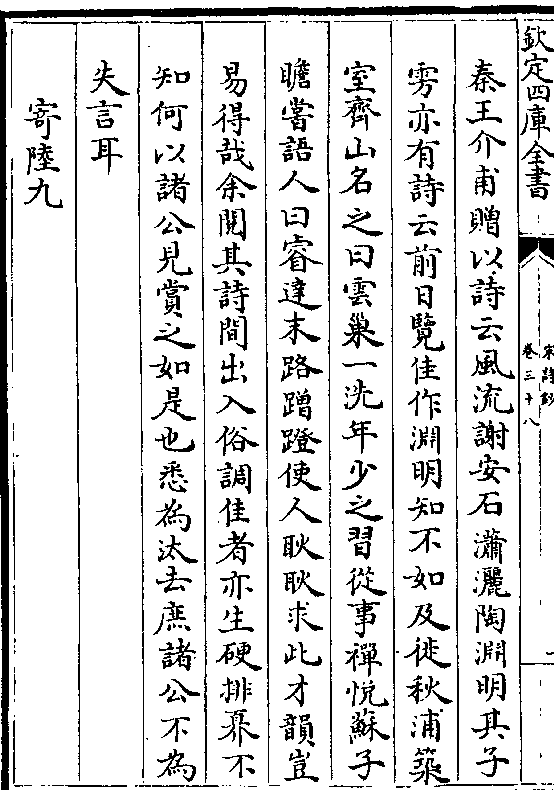 欽定四庫全書
宋詩鈔
卷三十八
秦王介甫贈以詩云風流謝安石瀟灑陶淵明其子
雱亦有詩云前日覽佳作淵明知不如及徙秋浦築
室齊山名之曰雲巢一洗年少之習從事禪悅蘇子
瞻嘗語人曰睿達末路蹭蹬使人耿耿求此才韻豈
易得哉余閱其詩間出入俗調佳者亦生硬排奡不
知何以諸公見賞之如是也悉為汰去庶諸公不為
失言耳
寄陸九